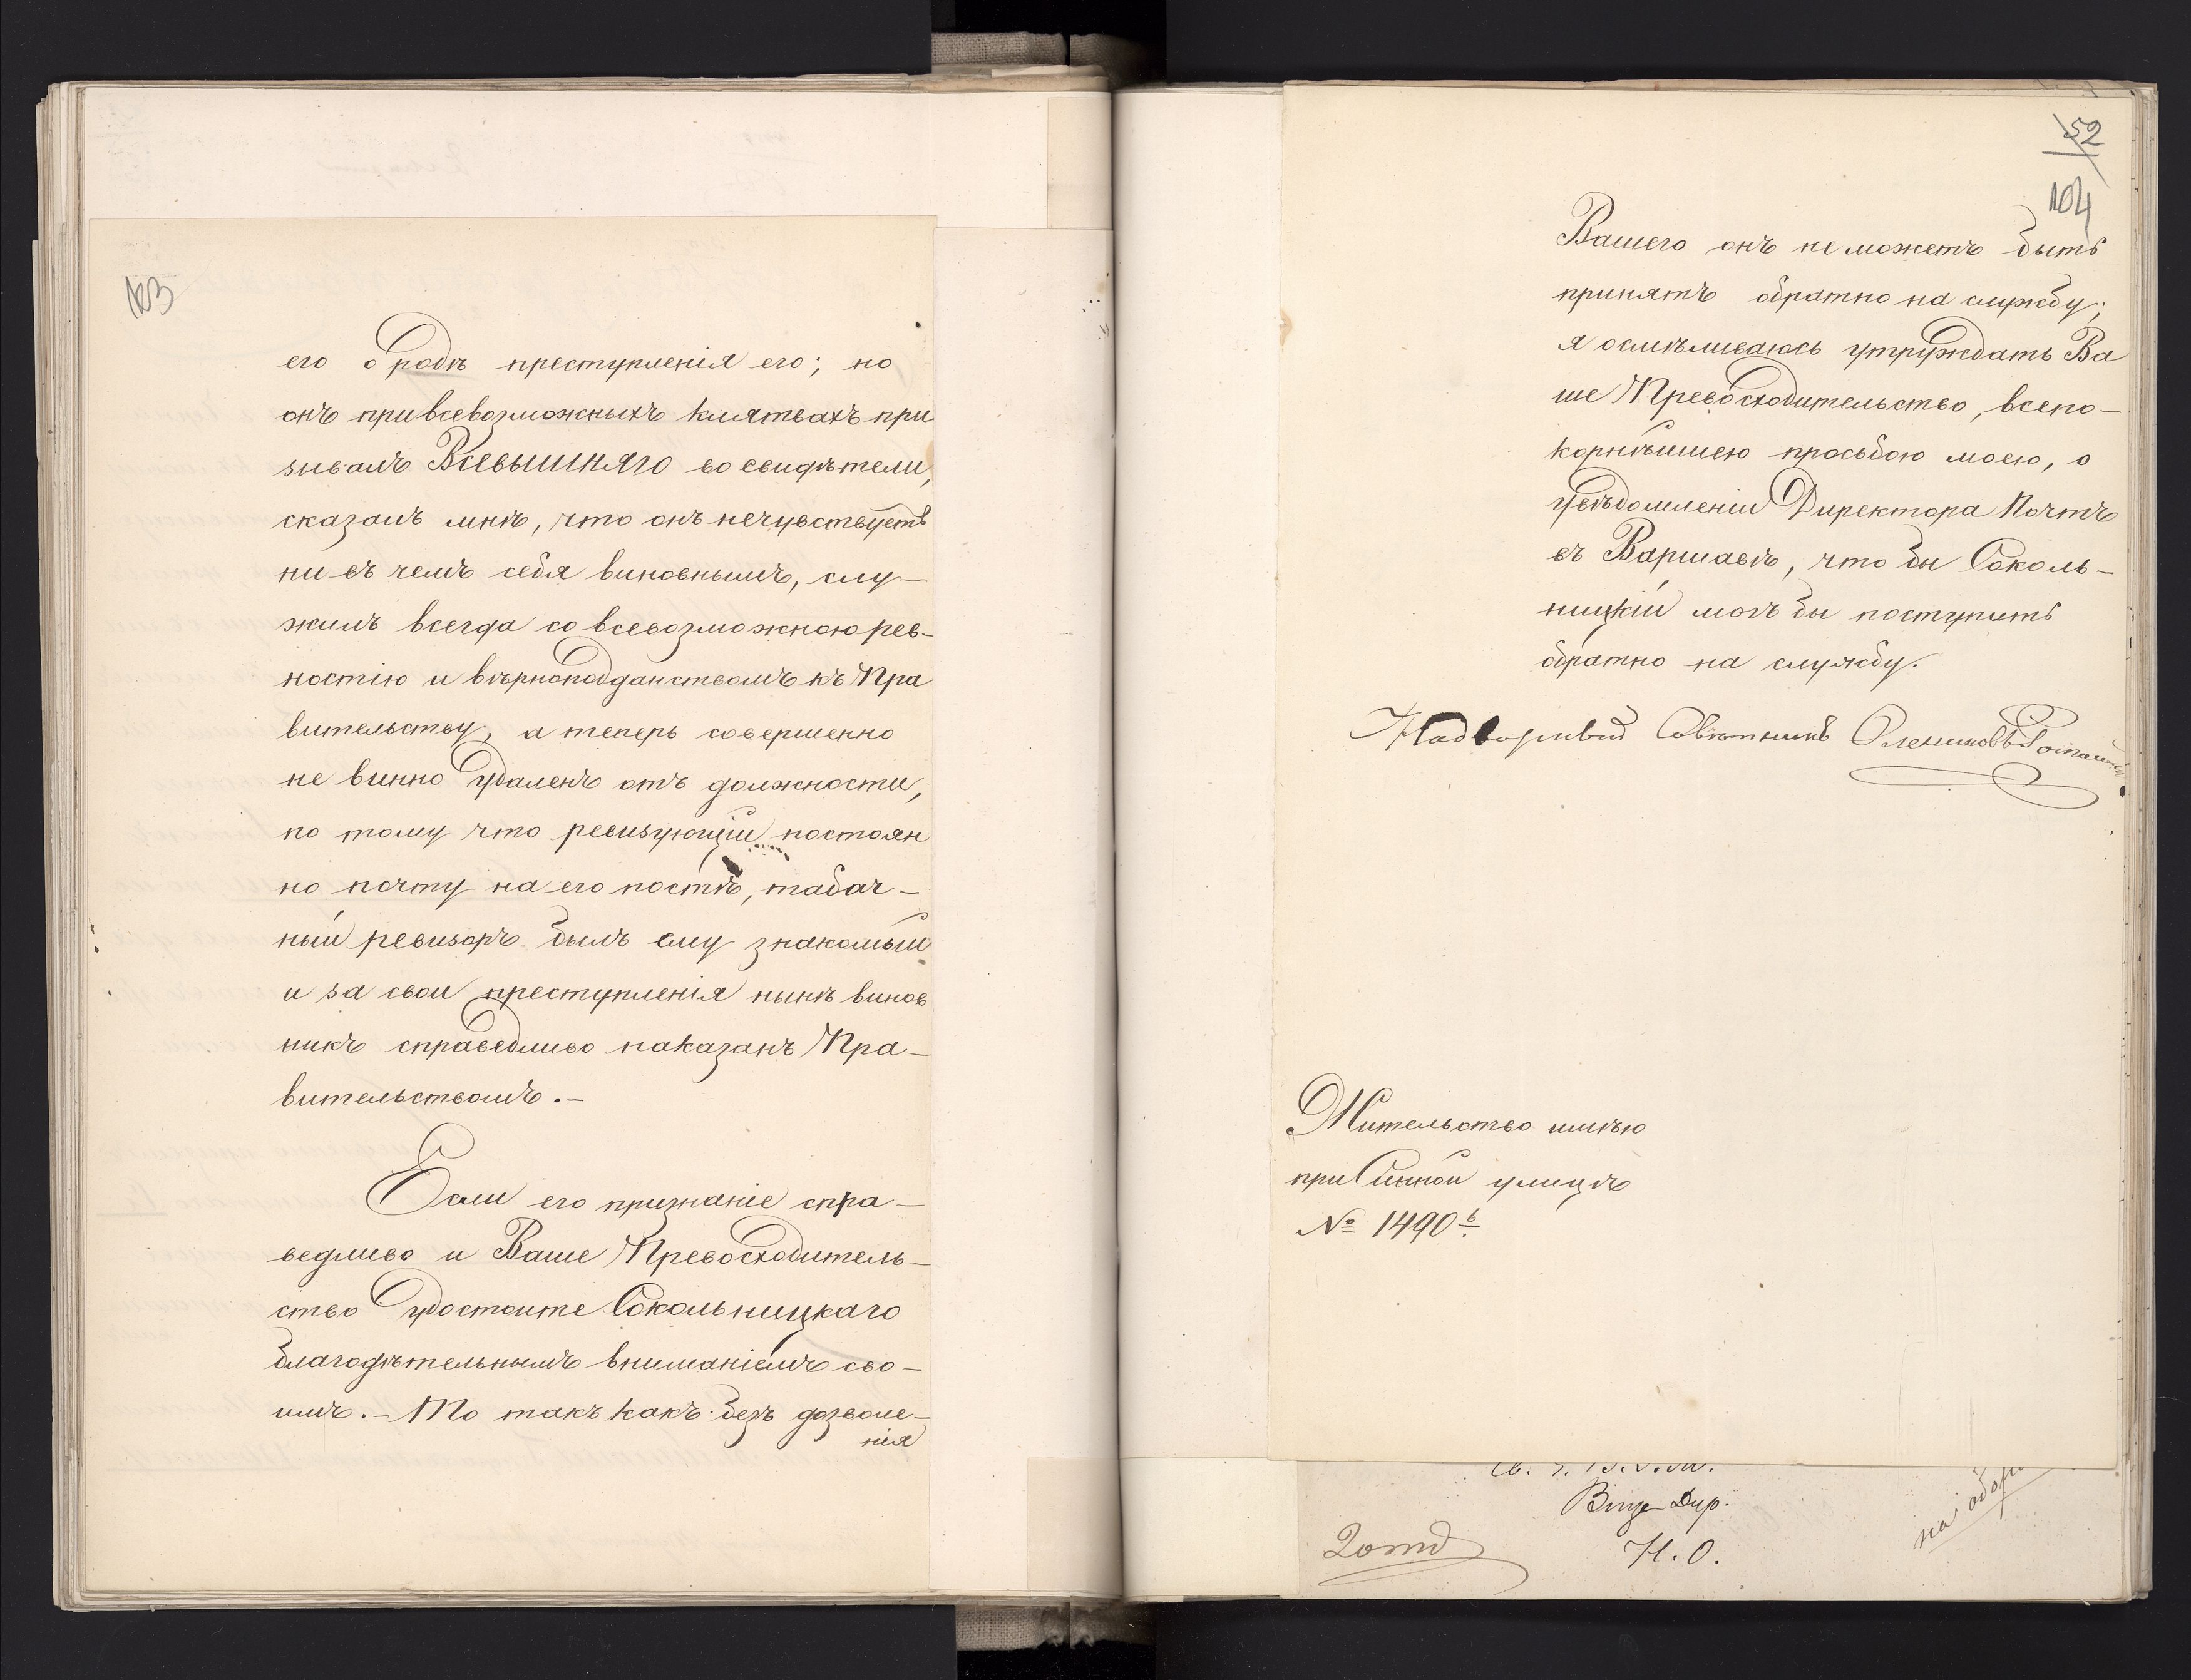 103
его о родѣ преступленія его; но
онъ при всевозможныхъ клятвахъ при
зывалъ Всевышняго во свидѣтели,
сказалъ мнѣ, что онъ нечувствуетъ
ни въ чемъ себя виновнымъ, слу-
жилъ всегда со всевозможною рев-
ностію и вѣрноподданствомъ къ Пра
вительству, а теперь совершенно
не винно удаленъ отъ должности,
по тому что ревизующій постоян
но почту на его постѣ, табач-
ный ревизоръ былъ ему знакомый
и за свои преступленія нынѣ винов
никъ справедливо наказанъ Пра-
вительствомъ.-
Если его признаніе спра-
ведливо и Ваше Превосходитель-
ство удостоите Сокольницкаго
благодѣтельнымъ вниманіемъ сво-
имъ.- То такъ какъ безъ дозволе-
нія
52
104
Вашего онъ не можетъ быть
принятъ обратно на службу;
я осмѣливаюсь утруждать Ва
ше Превосходительство, всепо-
корнѣйшею просьбою моею, о
увѣдомленіи Директора Почтъ
въ Варшавѣ, что бы Соколь-
ницкій могъ бы поступить
обратно на службу.
Надворный Совѣтникъ
Жительство имѣю
при Сѣнной улицѣ
№ 1490 b.
Вице Дир.
Н. О.
на обор